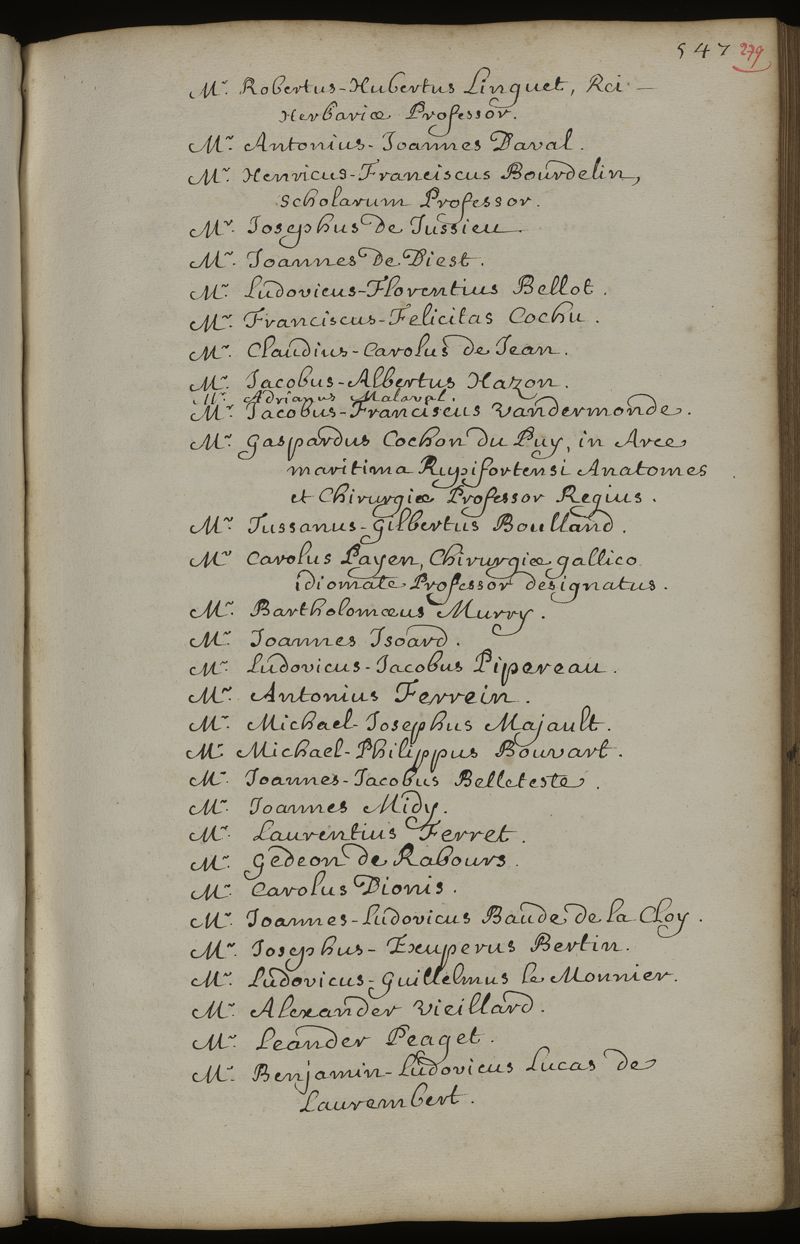 547 279
Mr. Robertus-Hubertus Linguet, Rei
Herbariæ Professor.
Mr. Antonius-Joannes Daval.
Mr. Henricus-Franciscus Bourdelin,
scholarum Professor.
Mr. Josephus de Jussieu.
Mr. Joannes De Diest.
Mr. Ludovicus-Florentius Bellot.
Mr. Franciscus-Felicitas Cochu.
Mr. Claudius-Carolus de Jean.
Mr. Jacobus-Albertus Hazon.
Mr. Adrianus Malaval.
Mr. Jacobus-Franciscus Vandermonde.
Mr. Gaspardus Cochon du Puy, in Arce
maritima Rupifortensi Anatomes
et Chirurgiæ Professor Regius.
Mr. Tussanus-Gilbertus Boulland.
Mr Carolus Payen, Chirurgiæ gallico
idiomate Professor designatus.
Mr. Bartholomæus Murry.
Mr. Joannes Isoard.
Mr. Ludovicus-Jacobus Pipereau.
Mr. Antonius Ferrein.
Mr. Michael-Josephus Majault.
Mr Michael-Philippus Bouvart.
Mr. Joannes-Jacobus Belleteste.
Mr. Joannes Midy.
Mr. Laurentius Ferret.
Mr. Gedeon de Rabours.
Mr. Carolus Dionis.
Mr. Joannes-Ludovicus Baude de la Cloy.
Mr. Josephus-Exuperus Bertin.
Mr. Ludovicus-Guillelmus le Monnier.
Mr. Alexander Vieillard.
Mr. Leander Peaget.
Mr. Benjamin-Ludovicus Lucas de
Laurembert.